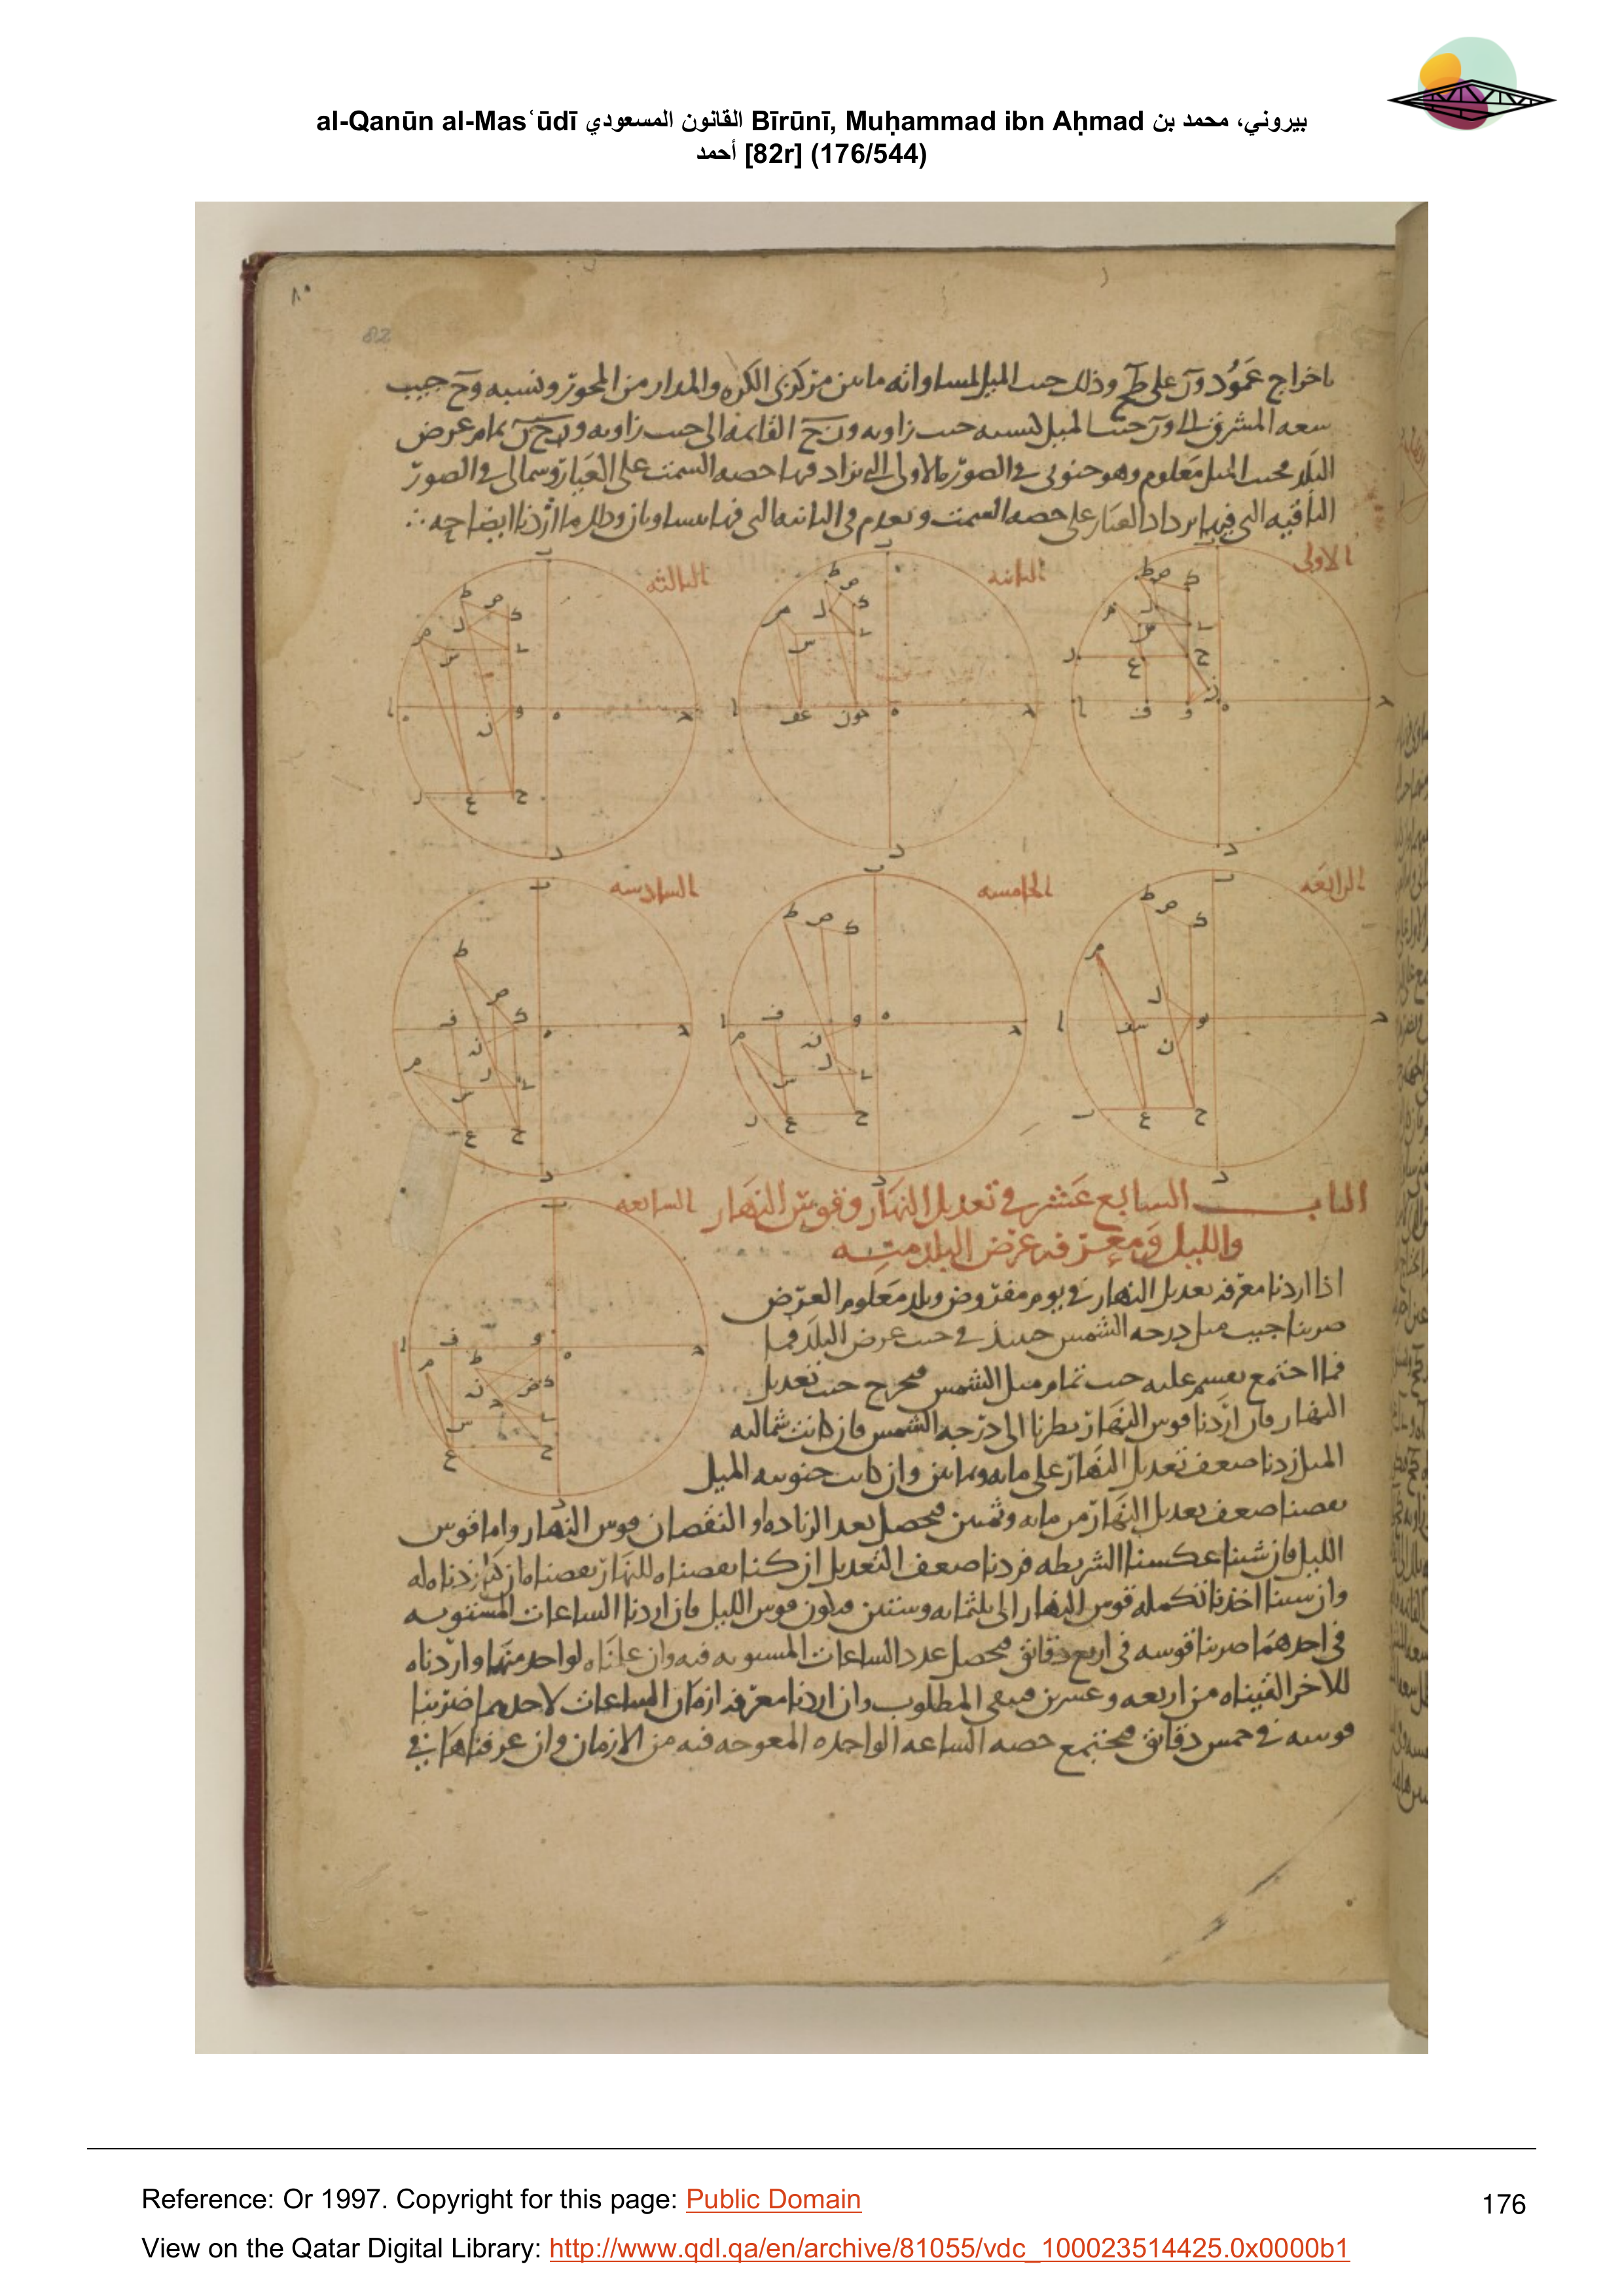 al-Qanūn al-Masʿūdī القانون المسعودي Bīrūnī, Muḥammad ibn Aḥmad بيروني، محمد بن
أحمد [82r] (176/544)
٨٠
82
باخراج عمود ون على طح وذلك جيب الميل لمساواته ما بين مركزى الكره والمدار من المحور ونسبه وح جيب
سعه المشرق الى ون جيب الميل كنسبه جيب زاويه ونح القايمه الى جيب زاويه وحن تمام عرض
البلد فجيب الميل معلوم وهو جنوبى فى الصوره الاولى التى تزاد فيها حصه السمت على العيار وشمالى فى الصور
الباقيه التى فيها يزداد العيار على حصه السمت ويعدم فى الثانيه التى فيها يتساويان وذلك ما اردنا ايضاحه
الاولى
الثانيه
الثالثه
الرابعه
الخامسه
السادسه
الباب السابع عشر في تعديل النهار وقوس النهار
السابعه
والليل ومعرفه عرض البلد منه
اذا اردنا معرفه تعديل النهار في يوم مفروض وبلد معلوم العرض
ضربنا جيب ميل درجه الشمس حينئذ في جيب عرض البلد فما
فما اجتمع نقسم عليه جيب تمام ميل الشمس فيخرج جيب تعديل
النهار فان اردنا قوس النهار نظرنا الى درجه الشمس فان كانت شماليه
الميل زدنا ضعف تعديل النهار على مايه وثمانين وان كانت جنوبيه الميل
نقصنا ضعف تعديل النهار من مايه وثمنين فيحصل بعد الزياده او النقصان قوس النهار واما قوس
الليل فان شينا عكسنا الشريطه فزدنا ضعف التعديل ان كنا نقصناه للنهار ونقصناه ان كنا زدناه له
وان شينا اخذنا تكمله قوس النهار الى ثلثمايه وستين فيكون قوس الليل فان اردنا الساعات المستويه
في احدهما ضربنا قوسه في اربع دقائق فيحصل عدد الساعات المستويه فيه وان علمناه لواحد منهما واردناه
للاخر القيناه من اربعه وعشرين فيبقى المطلوب وان اردنا معرفه ازمان الساعات لاحدهما ضربنا
قوسه في خمس دقائق فيجتمع حصه الساعه الواحده المعوجه فيه من الازمان وان عرفناها في
Reference: Or 1997. Copyright for this page: Public Domain
176
View on the Qatar Digital Library: http://www.qdl.qa/en/archive/81055/vdc_100023514425.0x0000b1